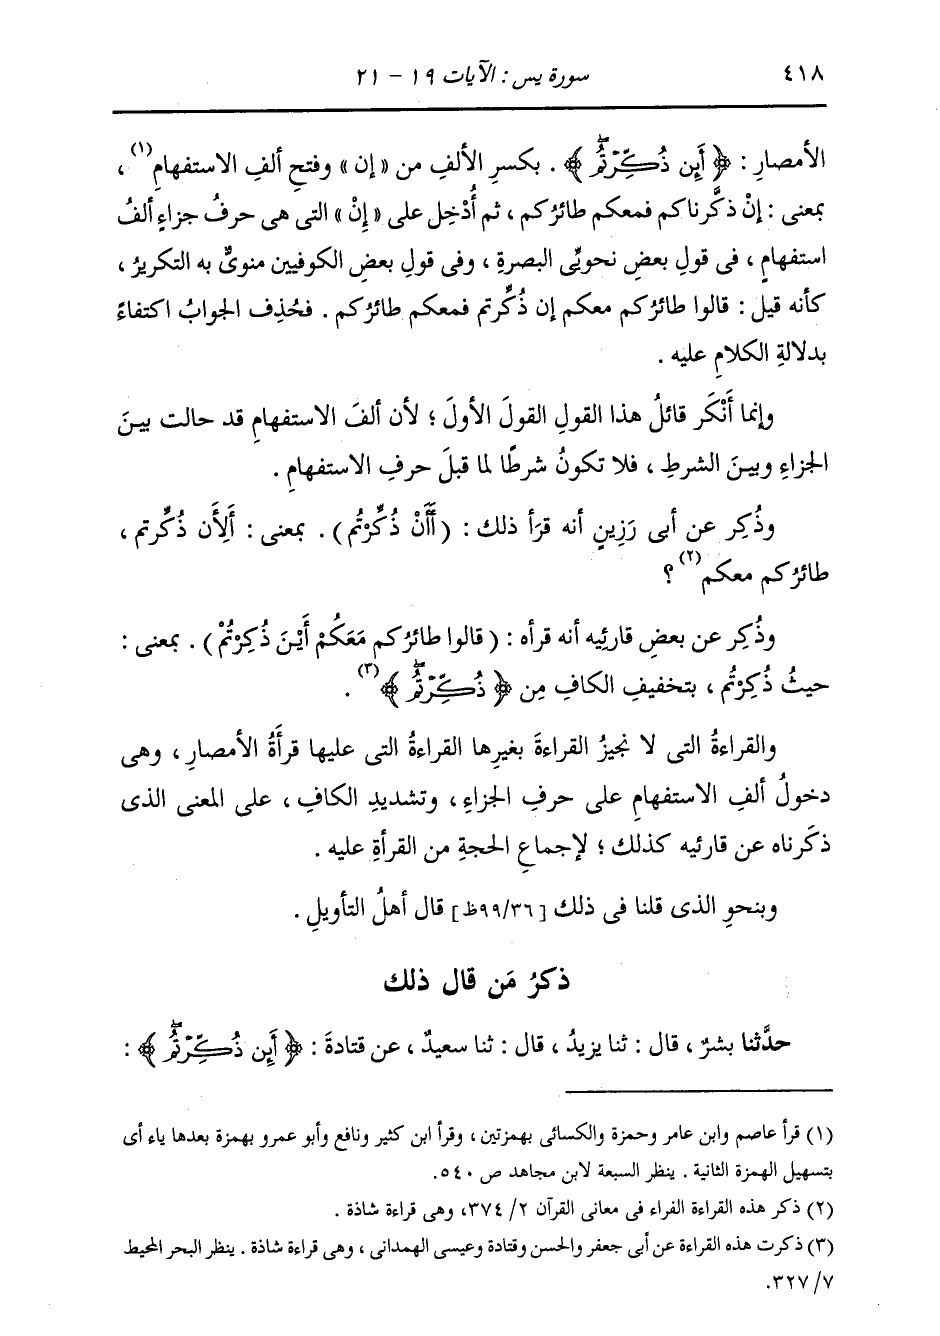 ٤١٨ سورة يس : الآيات ١٩ - ٢١
الأمصارِ : ﴿ أَئِن ذُكِّرْتُمۚ ﴾ . بكسرِ الألفِ من « إن » وفتحِ ألفِ الاستفهامِ(١) ،
بمعنى : إنْ ذكَّرناكم فمعكم طائرُكم ، ثم أُدْخِل على « إِنْ » التى هى حرفُ جزاءٍ ألفُ
استفهامٍ ، فى قولِ بعضِ نحويِّى البصرةِ ، وفى قولِ بعضِ الكوفيين منوىٌّ به التكريرُ ،
كأنه قيل : قالوا طائرُكم معكم إن ذُكِّرتم فمعكم طائرُكم . فحُذِف الجوابُ اكتفاءً
بدلالةِ الكلامِ عليه .
وإنما أَنْكَر قائلُ هذا القولِ القولَ الأولَ ؛ لأن ألفَ الاستفهامِ قد حالت بينَ
الجزاءِ وبينَ الشرطِ ، فلا تكونُ شرطًا لما قبلَ حرفِ الاستفهامِ .
وذُكِر عن أبى رَزِينٍ أنه قرَأ ذلك : ( أَأَنْ ذُكِّرْتُم ) . بمعنى : أَلِأَن ذُكِّرتم ،
طائرُكم معكم(٢) ؟
وذُكِر عن بعضِ قارئِيه أنه قرأه : ( قالوا طائرُكم مَعَكُمْ أَيْنَ ذُكِرْتُمْ ) . بمعنى :
حيثُ ذُكِرْتُم ، بتخفيفِ الكافِ مِن ﴿ ذُكِّرْتُمۚ ﴾(٣) .
والقراءةُ التى لا نجيزُ القراءةَ بغيرِها القراءةُ التى عليها قرأَةُ الأمصارِ ، وهى
دخولُ ألفِ الاستفهامِ على حرفِ الجزاءِ ، وتشديدِ الكافِ ، على المعنى الذى
ذكَرناه عن قارئيه كذلك ؛ لإجماعِ الحجةِ من القرأةِ عليه .
وبنحوِ الذى قلنا فى ذلك [٩٩/٣٦ظ] قال أهلُ التأويلِ .
ذكرُ مَن قال ذلك
حدَّثنا بشرٌ ، قال : ثنا يزيدُ ، قال : ثنا سعيدٌ ، عن قتادةَ : ﴿ أَئِن ذُكِّرْتُمۚ ﴾ :
(١) قرأ عاصم وابن عامر وحمزة والكسائى بهمزتين ، وقرأ ابن كثير ونافع وأبو عمرو بهمزة بعدها ياء أى
بتسهيل الهمزة الثانية . ينظر السبعة لابن مجاهد ص ٥٤٠.
(٢) ذكر هذه القراءة الفراء فى معانى القرآن ٢/ ٣٧٤، وهى قراءة شاذة .
(٣) ذكرت هذه القراءة عن أبى جعفر والحسن وقتادة وعيسى الهمدانى ، وهى قراءة شاذة . ينظر البحر المحيط
٧/ ٣٢٧.